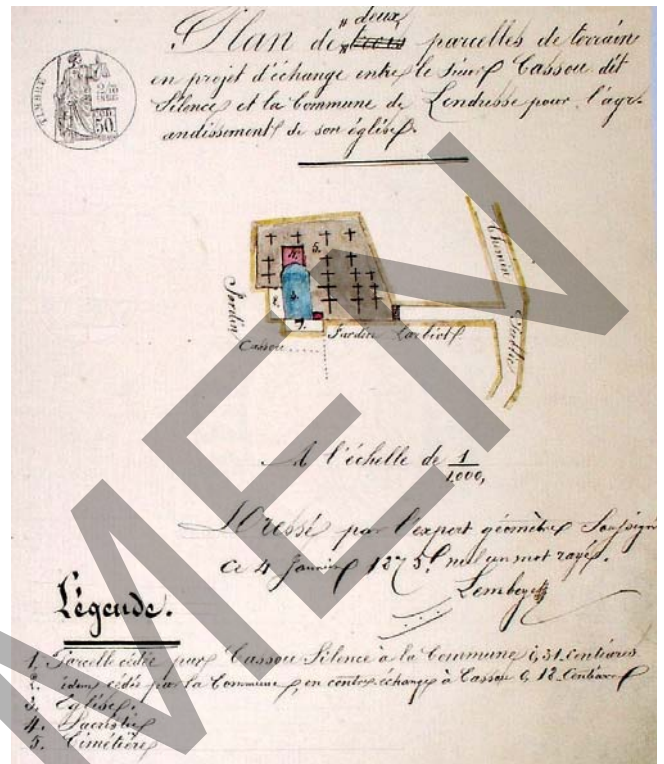 deux
Plan de trois parcelles de terrain
en projet d'échange entre le sieur Cassou dit
Silence et la Commune de Lendresse pour l'agr-
andissement de son église.
TIMBRE
50
4.
5.
3.
2.
1.
Jardin
Cassou
Jardin
Chemin
Public
A l'échelle de 1
1000,
Dressé par l'expert géomètre Soussigné
Ce 4 Janvier 1875 nul un mot rayé.
Légende.
1. Parcelle cédée par Cassou Silence à la Commune 31 Centiares
2. idem cédée par la Commune, en contre échange à Cassou 18 Centiares
3. Eglise.
4. Sacristie
5. Cimetière